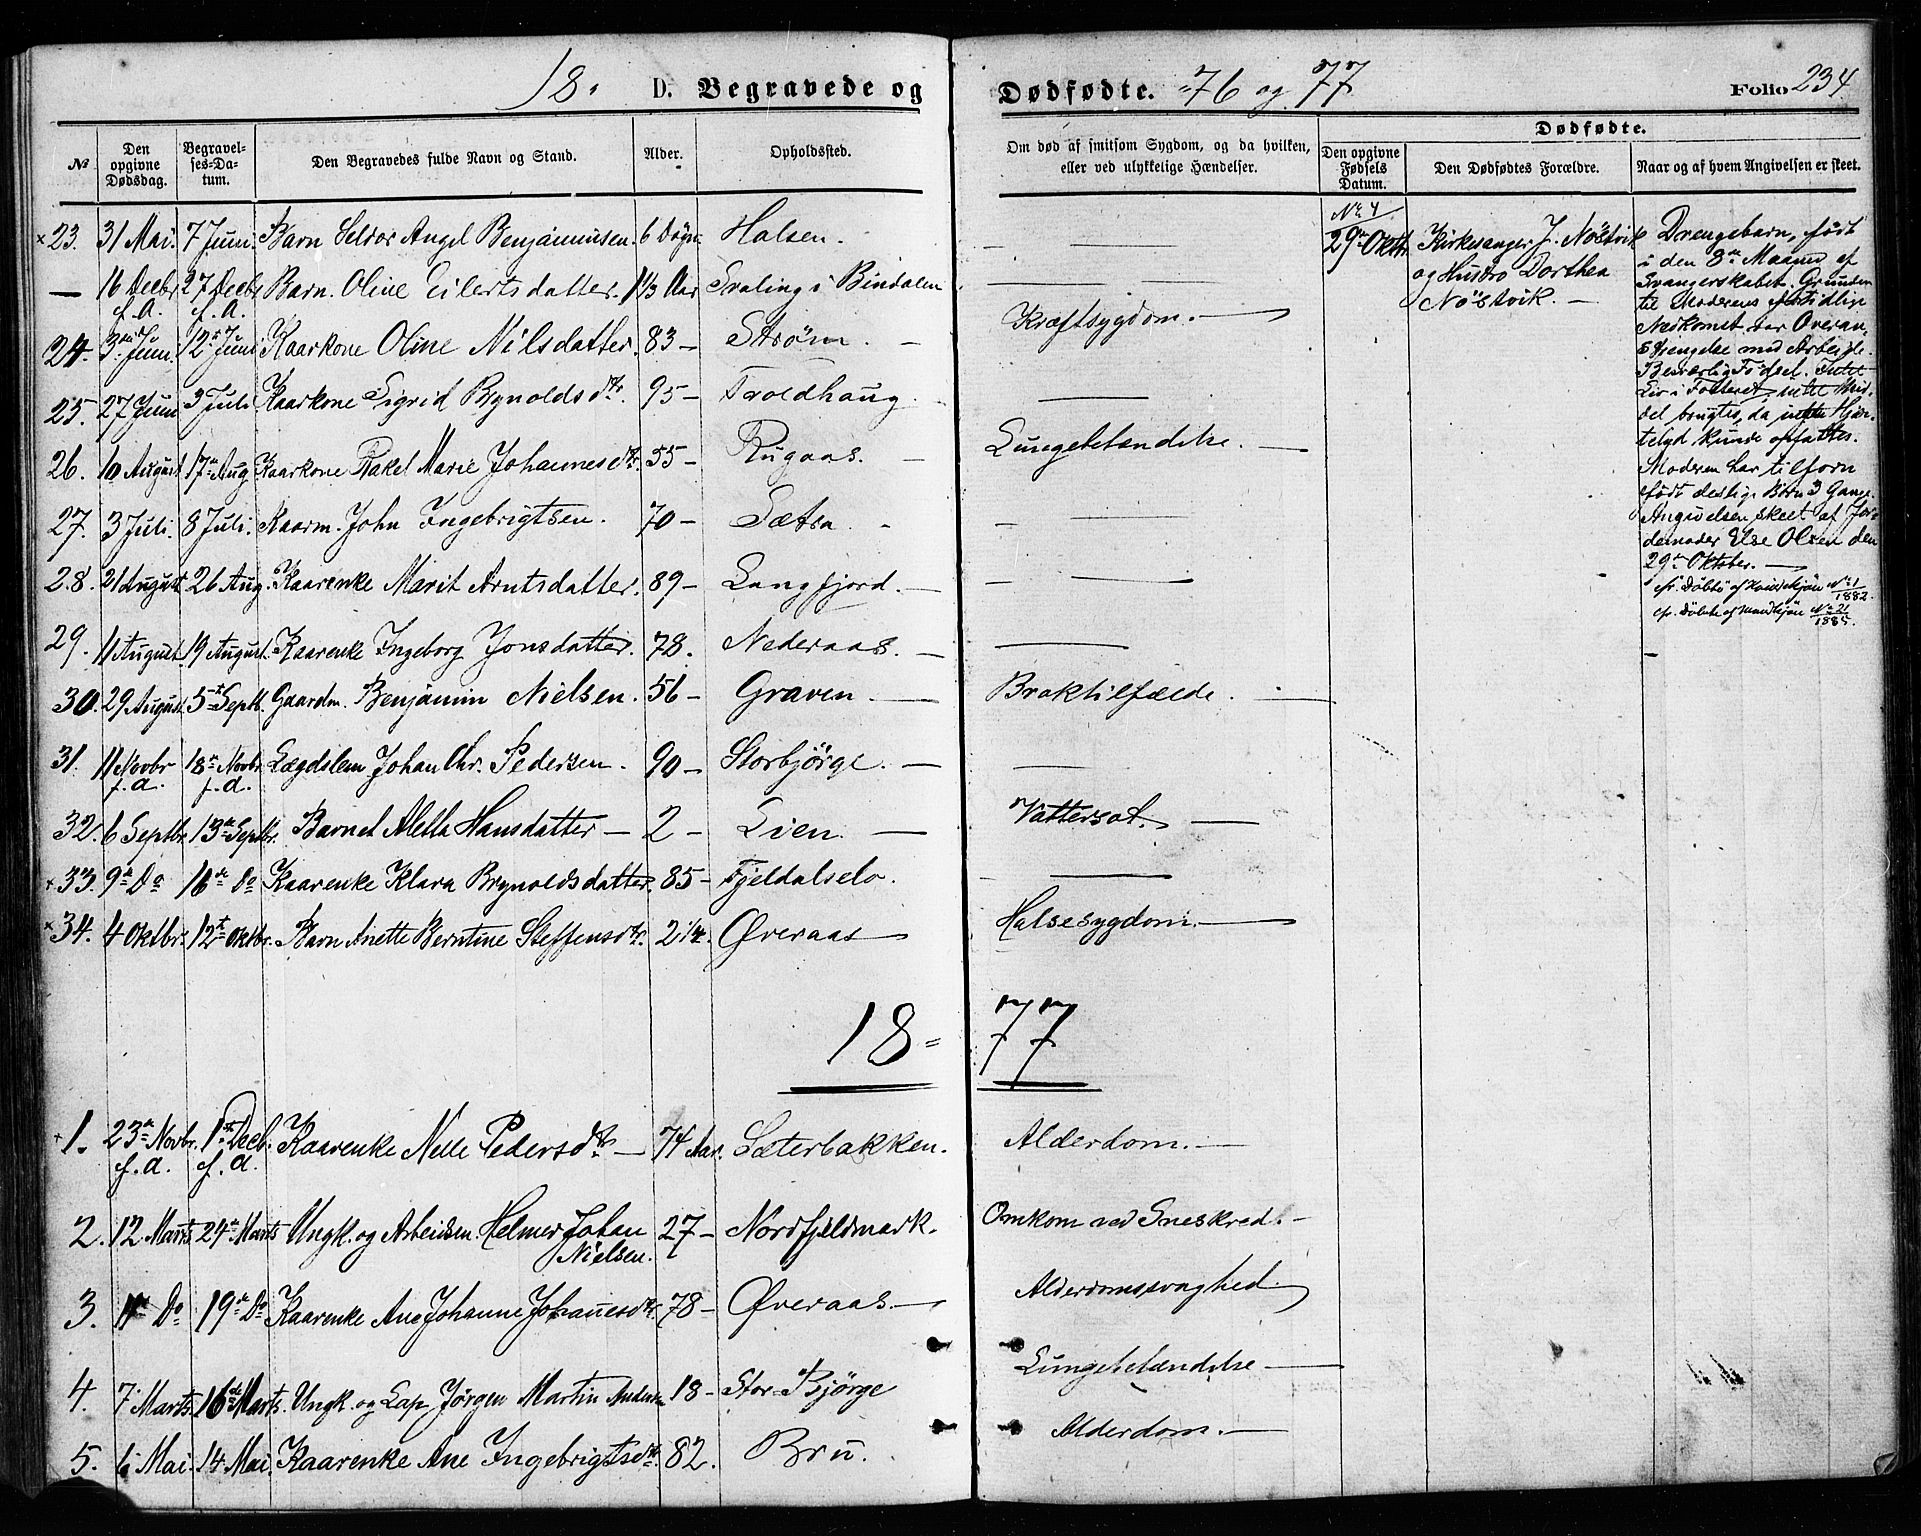 18. D. Begravede og Dødfødte. 76 og 77 Folio 234
№ Den opgivne Dødsdag. Begravelses-Datum. Den Begravedes fulde Navn og Stand. Alder. Opholdssted. Om død af smitsom Sygdom, og da hvilken, eller ved ulykkelige Hændelser. Dødfødte. Den opgivne Fødsels Datum. Den Dødfødtes Forældre. Naar og af hvem Angivelsen er skeet.
× 23. 31 Mai. 7 Juni. Barn Seldor Angel Benjaminsen. 6 Døgn Halsen. —
— 16 Decbr f.A. 27 Decbr f.A. Barn. Oline Eilertsdatter. 1 1/3 Aar Svaling i Bindalen —
24. 3die Juni. 12te Juni Kaarkone Oline Nilsdatter. 83 — Strøm. — Kræftsygdom. —
25. 27 Juni 3 Juli Kaarkone Sigrid Brynoldsdtr. 95 — Troldhaug. —
26. 10 August 17de Aug. Kaarkone Rakel Marie Johannesdtr. 55 — Rugaas. — Lungebetændelse. —
27. 3 Juli. 8 Juli. Kaarm. John Ingebrigtsen. 70 — Sætra — —
28. 21 August 26 Aug. Kaarenke Marit Arntsdatter. 89 — Langfjord. — —
29. 11 August 19 August. Kaarenke Ingeborg Jonsdatter. 78. Nederaas. — —
30. 29 August. 5te Septb. Gaardm. Benjamin Nielsen. 56 — Graven. — Broktilfælde. —
31. 11 Novbr f.a. 18de Novbr. f.a. Lægdslem Johan Chr. Pedersen. 90 — Storbjørge. — —
32. 6 Septbr. 13de Septbr. Barnet Aletta Hansdatter — 2 — Lien. — Vattersot. —
× 33. 9de Do 16de Do Kaarenke Klara Brynoldsdatter. 85 — Fjeldalselv. —
× 34. 4 Oktbr. 12te Oktbr. Barn Anette Berntine Steffensdtr. 2 1/4. Øveraas — Halsesygdom. —
No. 4
29de Oktbr. Kirkesanger J. Nöstvik
og Hustro Dorthea
Nöstvik. —
Drengebarn, født
i den 8de Maaned af
Svangerskabet. Grunden
til Moderens fortidlige
Nedkomst var Overan-
strengelse med Arbeide.
Besværlig Fødsel. Intet
Liv i Fosteret, intet Mid-
del brugtes, da intet Hjer-
telyd kunde opfattes.
Moderen har tilforn
født deslige Børn 3 Gange.
Angivelsen skeet af Jor-
demoder Else Olsen den
29de Oktober. —
cfr. Döbte af Kvindekjön No. 1/1882.
cfr. Döbte af Mandkjön No. 21/1885.
18 = 77
× 1. 23de Novbr. f.a. 1ste Decb. f.a. Kaarenke Nelle Pedersdtr — 74 Aar. Sæterbakken. Alderdom. —
2. 12 Marts 24de Marts Ungk. og Arbeidsm. Helmer Johan
Nielsen. 27 — Nordfjeldmark. Omkom ved Sneskred. —
3. 11 Do 19de Do Kaarenke Ane Johanne Johannesdtr. 78 — Øveraas. — Alderdomssvaghed.
4. 7. Marts. 16de Marts. Ungk. og Lap Jørgen Martin Andersen 18 — Stor-Bjørge Lungebetændelse —
5. 6 Mai. 14 Mai. Kaarenke Ane Ingebrigtsdtr. 82. Bru. Alderdom. —